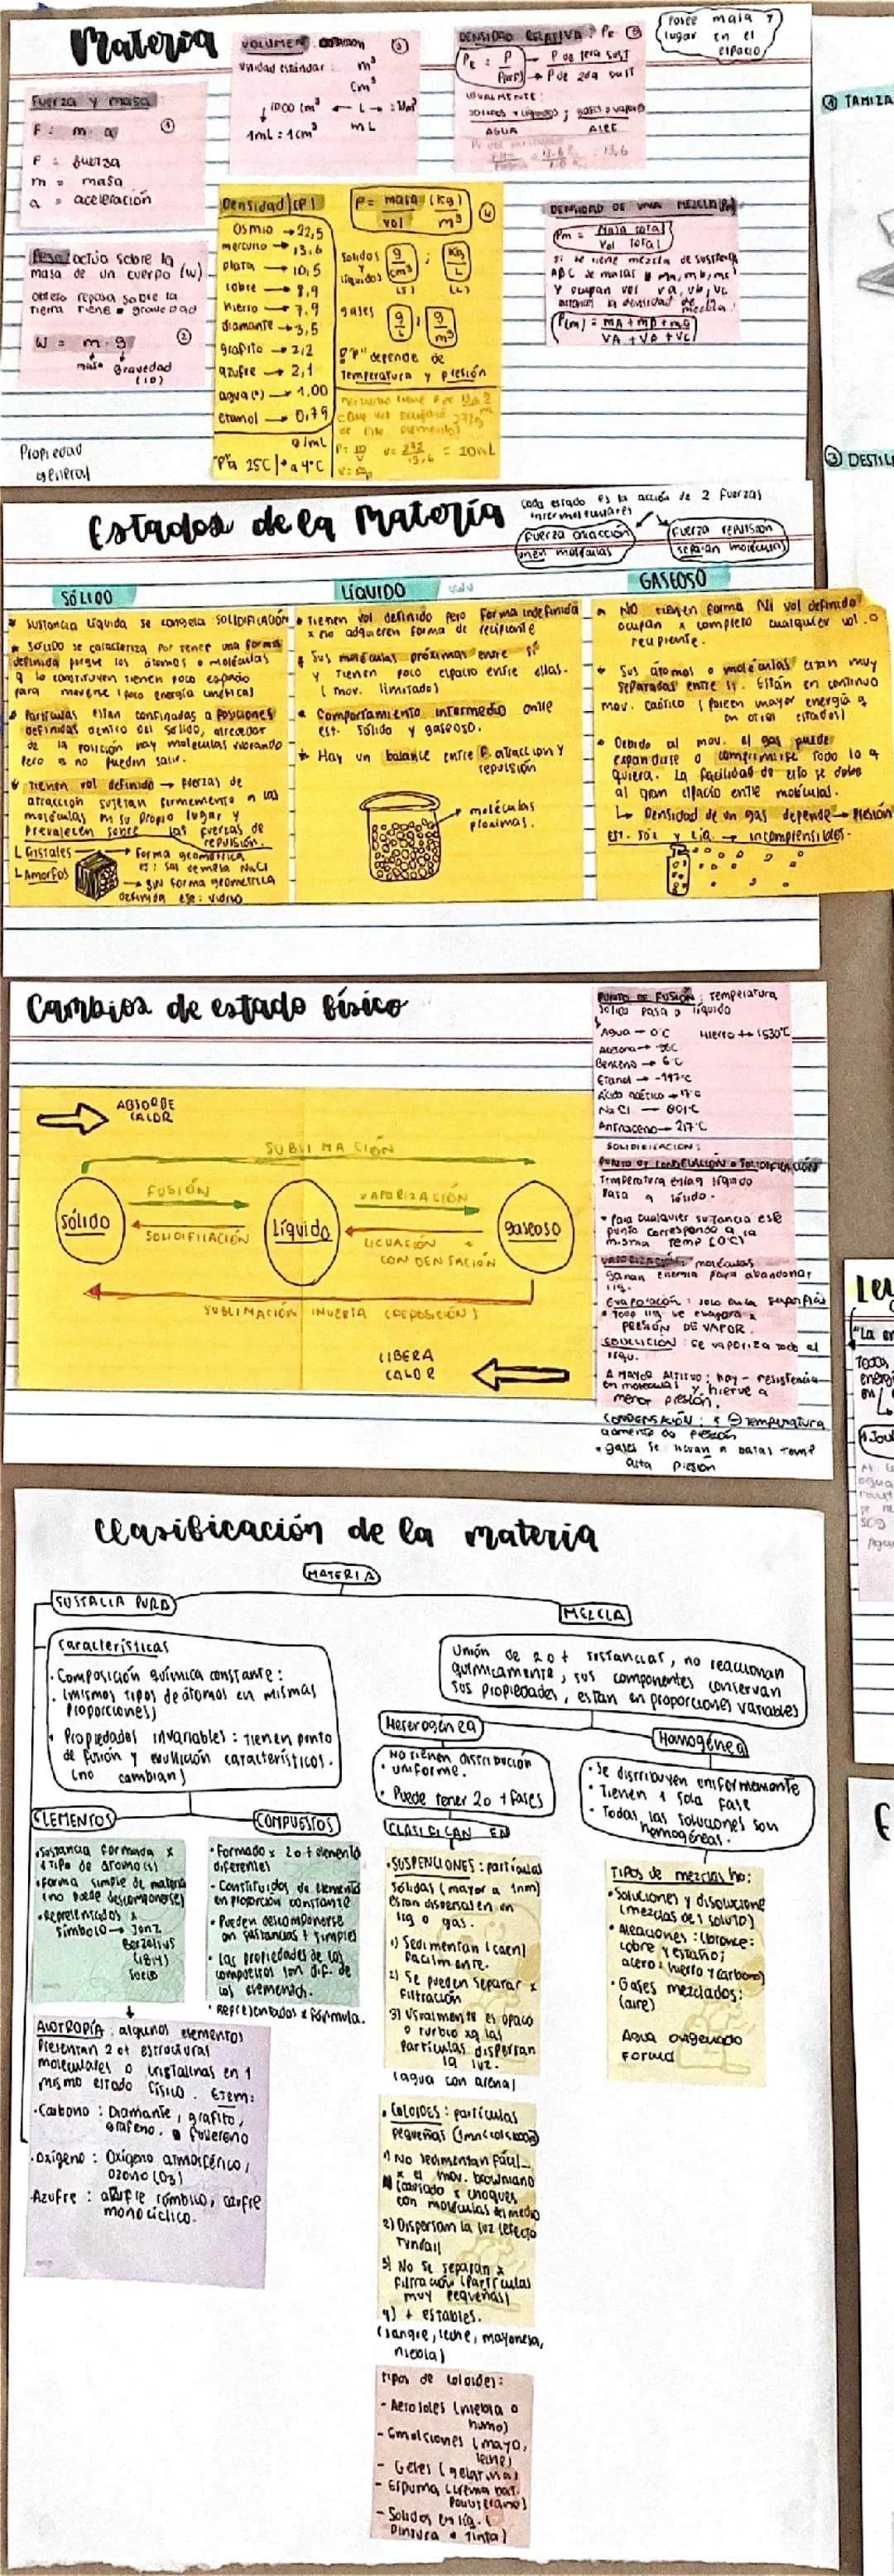 Materia
Posee masa y
lugar en el
espacio
Fuerza y masa
F = m · a
①
F = fuerza
m = masa
a = aceleración
Peso: actúa sobre la
masa de un cuerpo (w)
objeto reposa sobre la
tierra tiene gravedad
②
W = m · g
masa gravedad
(10)
Propiedad
general
VOLUMEN
③
unidad estándar: m³
cm³
1000 cm³ ← L →
1mL = 1cm³ mL
DENSIDAD RELATIVA: Pr
P de 1era sust
P de 2da sust
USUALMENTE:
sólidos y líquidos; gases o vapores
AGUA AIRE
Densidad (P)
Osmio → 22,5
mercurio → 13,6
plata → 10,5
cobre → 8,9
hierro → 7,9
diamante → 3,5
grafito → 2,2
azufre → 2,1
agua (*) → 1,00
etanol → 0,79
g/mL
P a 25°C | * a 4°C
P = masa (kg)
vol m³
④
Solidos
y
líquidos
g
cm³
;
kg
L
(S) (L)
gases
g
L
;
g
m³
"P" depende de
Temperatura y presión
= 20mL
DENSIDAD DE UNA MEZCLA (Pm)
Pm = Masa total
Vol Total
si se tiene mezcla de sustancia
ABC de masas ma, mb, mc
y ocupan vol va, vb, vc
la densidad de
mezcla:
P(m) = mA + mB + mC
VA + VB + VC
① TAMIZA
③ DESTIL
Estados de la Materia
Cada estado es la acción de 2 fuerzas
intermoleculares
Fuerza atracción
unen moléculas
Fuerza repulsión
separan moléculas
SÓLIDO
LÍQUIDO
GASEOSO
* Sustancia líquida se congela SOLIDIFICACIÓN
* SÓLIDO se caracteriza por tener una forma
definida porque los átomos o moléculas
q lo constituyen tienen poco espacio
para moverse (poca energía cinética)
* Partículas están confinadas a posiciones
definidas dentro del sólido, alrededor
de la posición hay moléculas vibrando
pero no pueden salir.
* Tienen vol definido → Fuerzas de
atracción sujetan firmemente a las
moléculas en su propio lugar y
prevalecen sobre las fuerzas de
repulsión.
L Cristales → Forma geométrica
ej: sal de mesa NaCl
L Amorfos → sin forma geométrica
definida eje: vidrio
* Tienen vol definido pero forma indefinida
x no adquieren forma de recipiente
* Sus moléculas próximas entre sí
y tienen poco espacio entre ellas.
(mov. limitado)
* Comportamiento intermedio entre
est. sólido y gaseoso.
* Hay un balance entre F. atracción y
repulsión
moléculas
próximas.
* NO tienen forma NI vol definido
ocupan x completo cualquier vol. o
recipiente.
* Sus átomos o moléculas están muy
separadas entre sí. Están en continuo
mov. caótico (poseen mayor energía q
en otros estados)
* Debido al mov. el gas puede
expandirse o comprimirse todo lo q
quiera. La facilidad de esto se debe
al gran espacio entre moléculas.
↳ Densidad de un gas depende → Presión
est. sól y liq. → incomprensibles.
Cambios de estado físico
ABSORBE
CALOR
SUBLIMACIÓN
FUSIÓN
VAPORIZACIÓN
Sólido
Líquido
gaseoso
SOLIDIFICACIÓN
LICUACIÓN
CONDENSACIÓN
SUBLIMACIÓN INVERSA (DEPOSICIÓN)
LIBERA
CALOR
PUNTO DE FUSIÓN: Temperatura
Sólido pasa a líquido
Agua → 0°C Hierro → 1530°C
Benceno → 6°C
Etanol → -117°C
Ácido acético → 17°C
NaCl → 801°C
Antraceno → 217°C
SOLIDIFICACION:
PUNTO DE CONGELACIÓN o SOLIDIFICACIÓN
Temperatura en la q líquido
pasa a sólido.
• Para cualquier sustancia este
punto corresponde a la
misma temp (0°C)
VAPORIZACIÓN: moléculas
ganan energía para abandonar
liq.
Evaporación: solo en la superficie
• Todo liq se evapora x
PRESIÓN DE VAPOR.
EBULLICIÓN: se vaporiza todo el
líqu.
A MAYOR ALTITUD: hay – resistencia
en moléculas y hierve a
menor presión.
CONDENSACIÓN: x ⊖ temperatura
aumento de presión
• gases se llevan a bajas temp
alta presión
Clasificación de la materia
MATERIA
SUSTACIA PURA
MEZCLA
Características
· Composición química constante:
(mismos tipos de átomos en mismas
proporciones)
· Propiedades invariables: Tienen punto
de fusión y ebullición característicos.
(no cambian)
Unión de 2 o + sustancias, no reaccionan
químicamente, sus componentes conservan
sus propiedades, estan en proporciones variables
Heterogénea
Homogénea
NO tienen distribución
uniforme.
· Puede tener 2 o + fases
· Se distribuyen uniformemente
· Tienen 1 sola fase
· Todas las soluciones son
homogéneas.
ELEMENTOS
COMPUESTOS
CLASIFICAN EN
· Sustancia formada x
1 tipo de átomo(s)
· Forma simple de materia
(no puede descomponerse)
· Representados x
símbolo → Jonz
Berzelius
(1814)
Sueco
· Formado x 2 o + elemento
diferentes
· Constituidos de elemento
en proporción constante
· Pueden descomponerse
en sustancias + simples
· Las propiedades de los
compuestos son dif. de
los elementos.
· Representados x fórmula.
ALOTROPÍA: algunos elementos
Presentan 2 o + estructuras
moleculares o cristalinas en 1
mismo estado físico. Ejem:
· Carbono: Diamante, grafito,
grafeno, fulereno
· Oxígeno: Oxígeno atmosférico,
ozono (O3)
· Azufre: azufre rómbico, azufre
monocíclico.
· SUSPENCIONES: partículas
sólidas (mayor a 1nm)
estan dispersas en
liq o gas.
1) Sedimentan (caen)
facilmente.
2) Se pueden separar x
filtración
3) Usualmente es opaco
o turbio xq las
partículas dispersan
la luz.
(agua con arena)
· COLOIDES: partículas
pequeñas
1) No sedimentan fácil
x el mov. browniano
(causado x choques
con moléculas del medio
2) Dispersan la luz (efecto
Tyndall
3) No se separan x
filtración (partículas
muy pequeñas)
4) + estables.
(sangre, leche, mayonesa,
niebla)
Tipos de coloides:
- Aerosoles (niebla o
humo)
- Emulsiones (mayo,
leche)
- Geles (gelatina)
- Espuma (crema bat.
- Solidos en liq. (
Pintura • Tinta)
TIPOS de mezclas ho:
· Soluciones y disolucione
(mezclas de 1 soluto)
· Aleaciones: (bronce:
cobre y estaño;
acero: hierro y carbono)
· Gases mezclados:
(aire)
Agua oxigenada